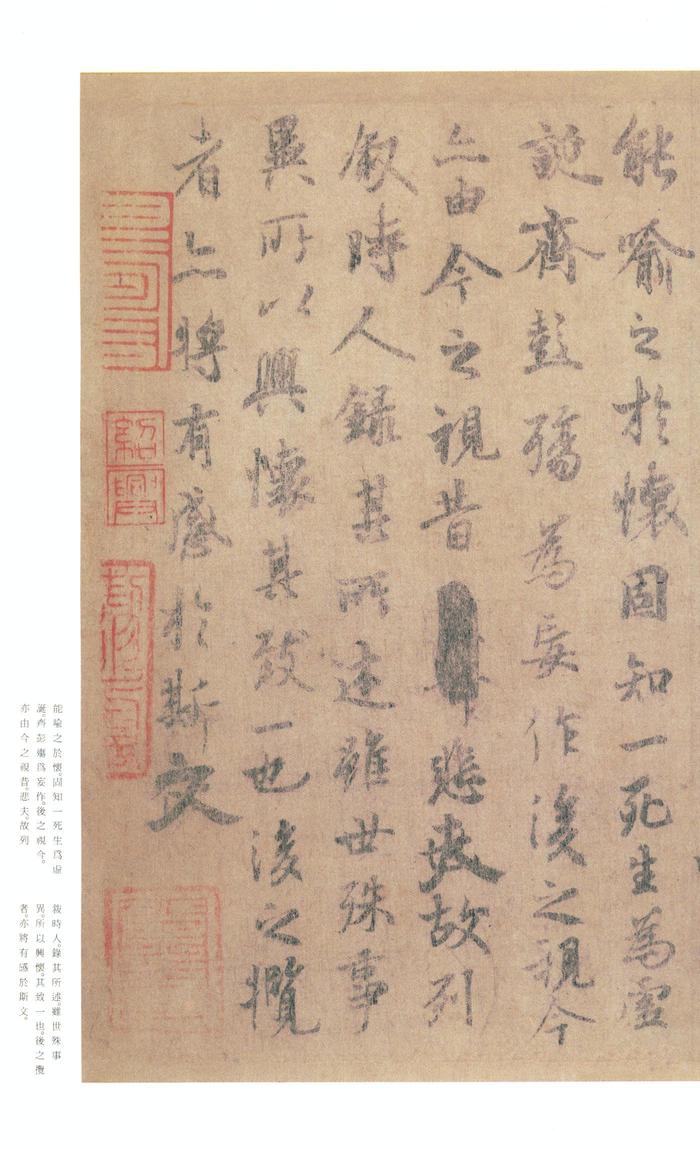 能喻之於懷固知一死生為虛
誕齊彭殤為妄作後之視今
亦由今之視昔悲夫故列
叙時人録其所述雖世殊事
異所以興懷其致一也後之攬
者亦將有感於斯文
紹興
能喻之於懷。固知一死生爲虛
誕。齊彭殤爲妄作。後之視今。
亦由今之視昔。悲夫。故列
叙時人。錄其所述。雖世殊事
異。所以興懷。其致一也。後之攬
者。亦將有感於斯文。